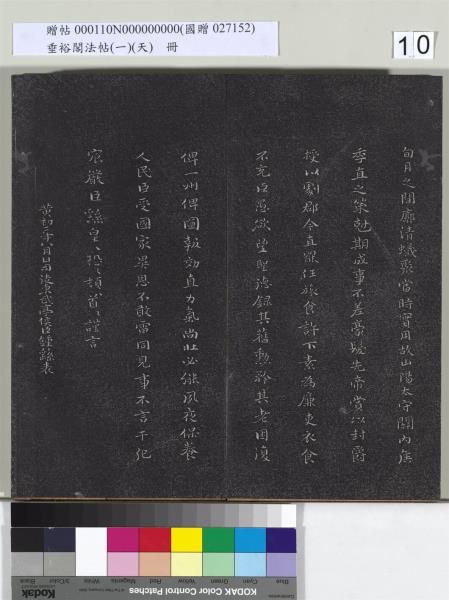 贈帖 000110N000000000(國贈 027152)
垂裕閣法帖(一)(天) 冊
10
旬月之間廓清蟻聚當時實用故山陽太守關內侯
季直之策剋期成事不差豪髮先帝賞以封爵
授以劇郡今直罷任旅食許下素為廉吏衣食
不充臣愚欲望聖德錄其舊勳矜其老困復
俾一州俾圖報效直力氣尚壯必能夙夜保養
人民臣受國家異恩不敢雷同見事不言干犯
宸嚴臣繇皇皇恐恐頓首頓首謹言
黃初二年八月日司徒東武亭侯臣鍾繇表
Blue Cyan Green Yellow Red Magenta White 3/Color Black
KODAK Color Control Patches
Kodak